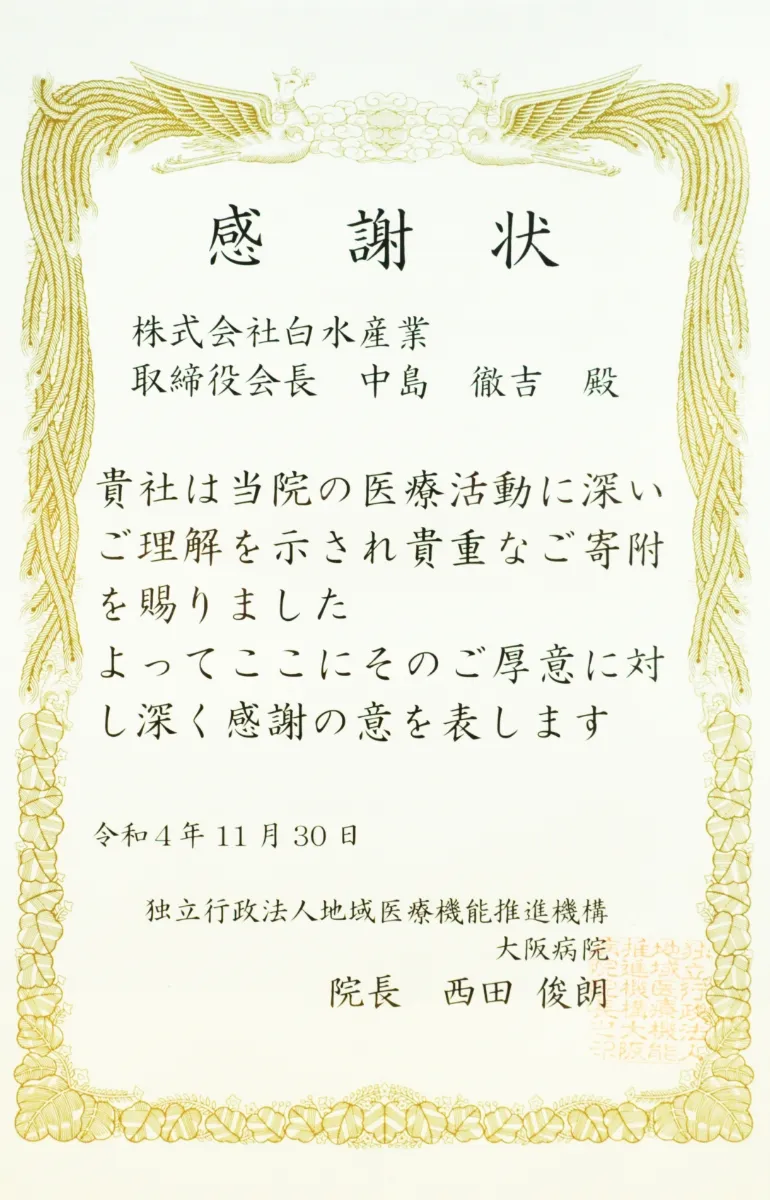 感謝状
株式会社白水産業
取締役会長　中島　徹吉　殿
貴社は当院の医療活動に深い
ご理解を示され貴重なご寄附
を賜りました
よってここにそのご厚意に対
し深く感謝の意を表します
令和4年11月30日
独立行政法人地域医療機能推進機構
大阪病院
院長　西田 俊朗